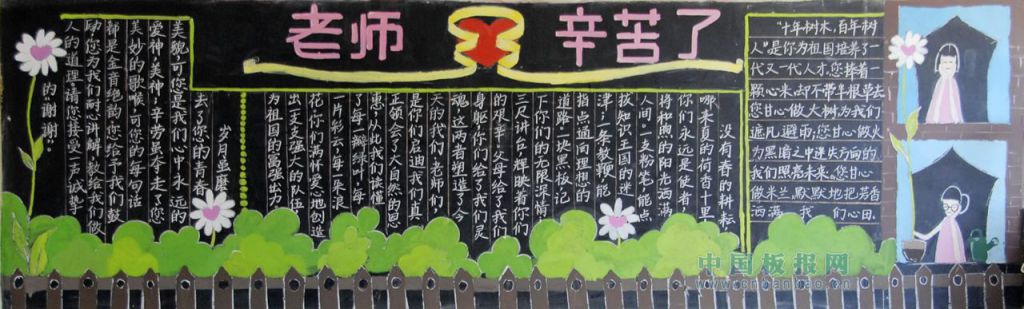 老师 辛苦了
没有春的耕耘
哪来夏的荷香十里
你们永远是使者
将和煦的阳光洒满
人间，一支粉笔，能点
拔知识王国的迷
津，一条教鞭，能
指点通向理想的
道路，一块黑板，记
下你们的无限深情
三尺讲台，辉映着你们
的艰辛，父母给了我们
身躯，你们给了我们灵
魂，这两者塑造了今
天的我们，老师们，
是你们启迪我们真
正领会了大自然的恩
惠，从此我们读懂
了每一瓣绿叶，每
一片彩云，每一朵浪
花，你们满怀爱心地创造
出一支支强大的队伍，
为祖国的富强出力
岁月虽
去了您的青春
美貌，可您是我们心中永远的
爱神，美神，辛劳虽夺走了您
美妙的歌喉，可您的每句话
都是金音绝韵，您给予我们鼓
励，您为我们耐心讲解，教给我们做
人的道理，请您接受一声诚挚
的谢谢！
"十年树木，百年树
人"是你为祖国培养了一
代又一代人才，您捧着一
颗心来，却不带半根草去
您甘心做大树为我们
遮风避雨，您甘心做火
为黑暗之中迷失方向的
我们照亮未来，您甘心
做米兰，默默地把芳香
洒满我们心田。
中国板报网
www.cnbanbao.cn